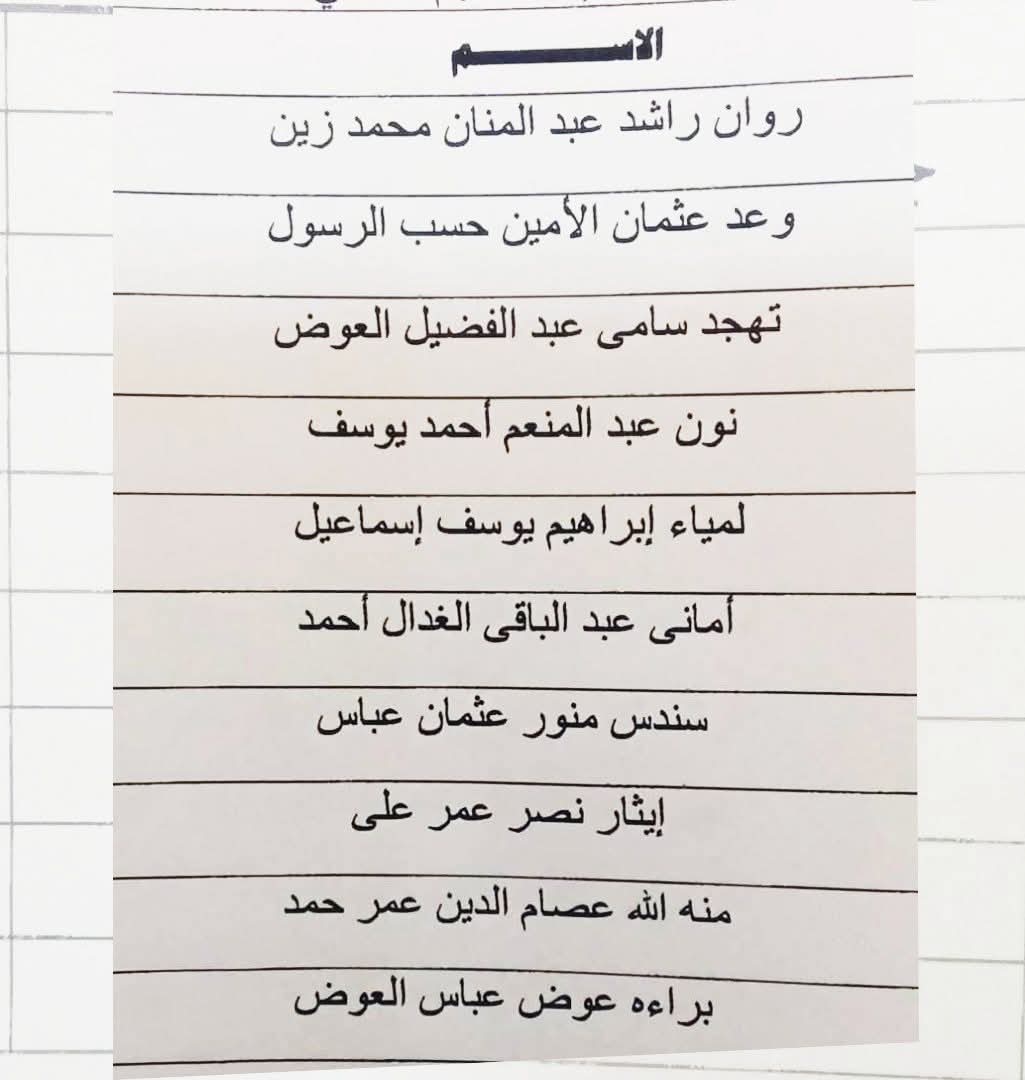 الاســـــــم
روان راشد عبد المنان محمد زين
وعد عثمان الأمين حسب الرسول
تهجد سامى عبد الفضيل العوض
نون عبد المنعم أحمد يوسف
لمياء إبراهيم يوسف إسماعيل
أمانى عبد الباقى الغدال أحمد
سندس منور عثمان عباس
إيثار نصر عمر على
منه الله عصام الدين عمر حمد
براءه عوض عباس العوض